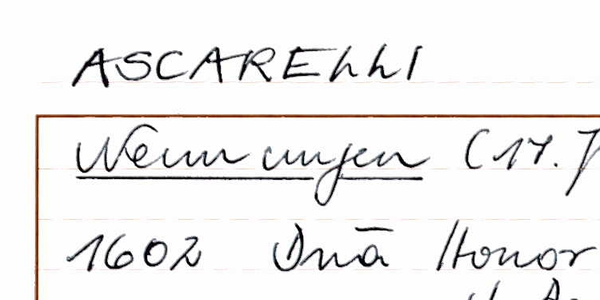 ASCARELLI
Nennungen (17. J
1602 Dnā Honor